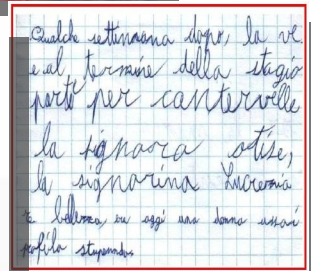 Qualche settimana dopo, la ve
e al termine della stagio
partì per cantervelle
la signora otise,
la signorina Lucrezia
bellezza, era oggi una donna assai
profilo stupendo